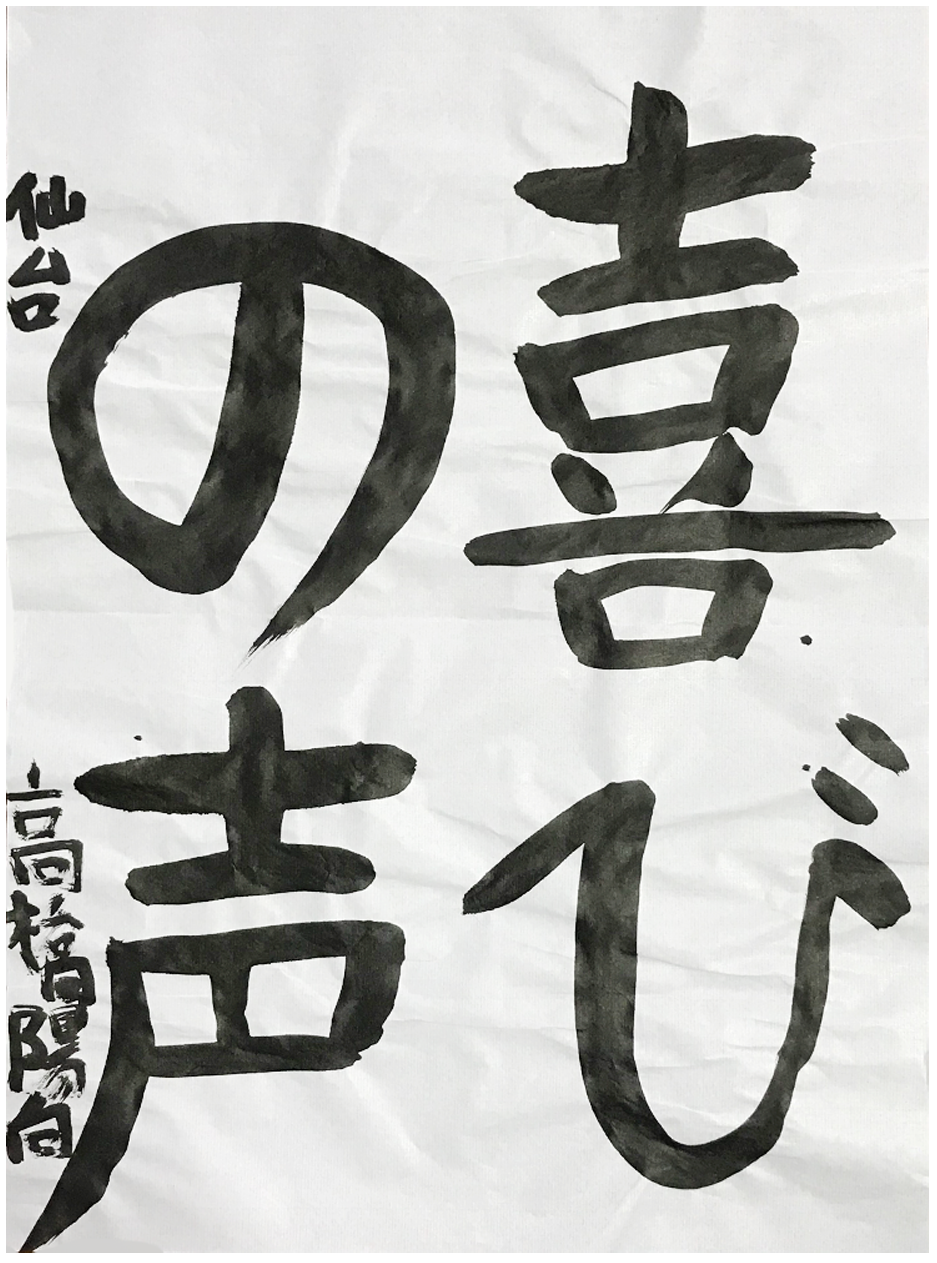 喜び
の声
仙台 高橋陽向